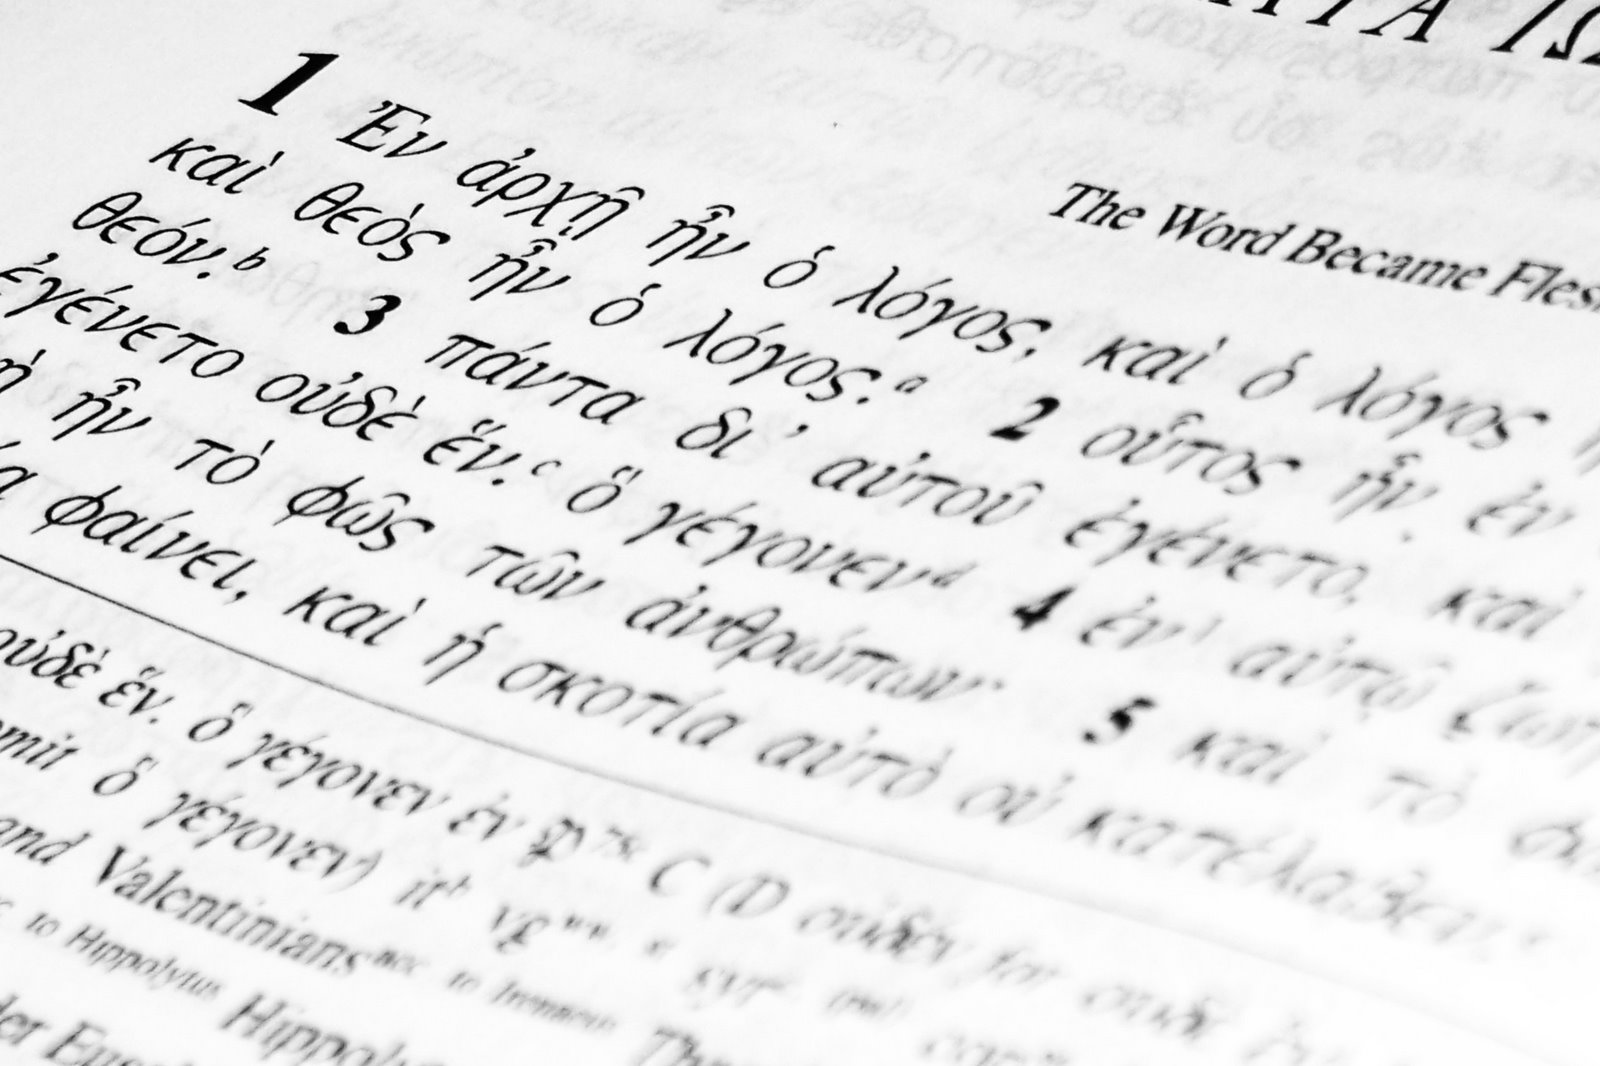 ΤΑ ΙΩ
The Word Became Fles
1 Ἐν ἀρχῇ ἦν ὁ λόγος, καὶ ὁ λόγος
καὶ θεὸς ἦν ὁ λόγος.a 2 οὗτος ἦν ἐν
θεόν.b 3 πάντα δι' αὐτοῦ ἐγένετο, καὶ
ἐγένετο οὐδὲ ἕν.c ὃ γέγονενd 4 ἐν1 αὐτῷ ζωὴ
ἦν τὸ φῶς τῶν ἀνθρώπων· 5 καὶ τὸ
φαίνει, καὶ ἡ σκοτία αὐτὸ οὐ κατέλαβεν.
οὐδὲ ἕν. ὃ γέγονεν ἐν 𝔓75c C (D οὐδέν for οὐδὲ
omit ὃ γέγονεν) itb vgww syrc
and Valentiniansacc. to Irenaeus
to Hippolytus Hippoly